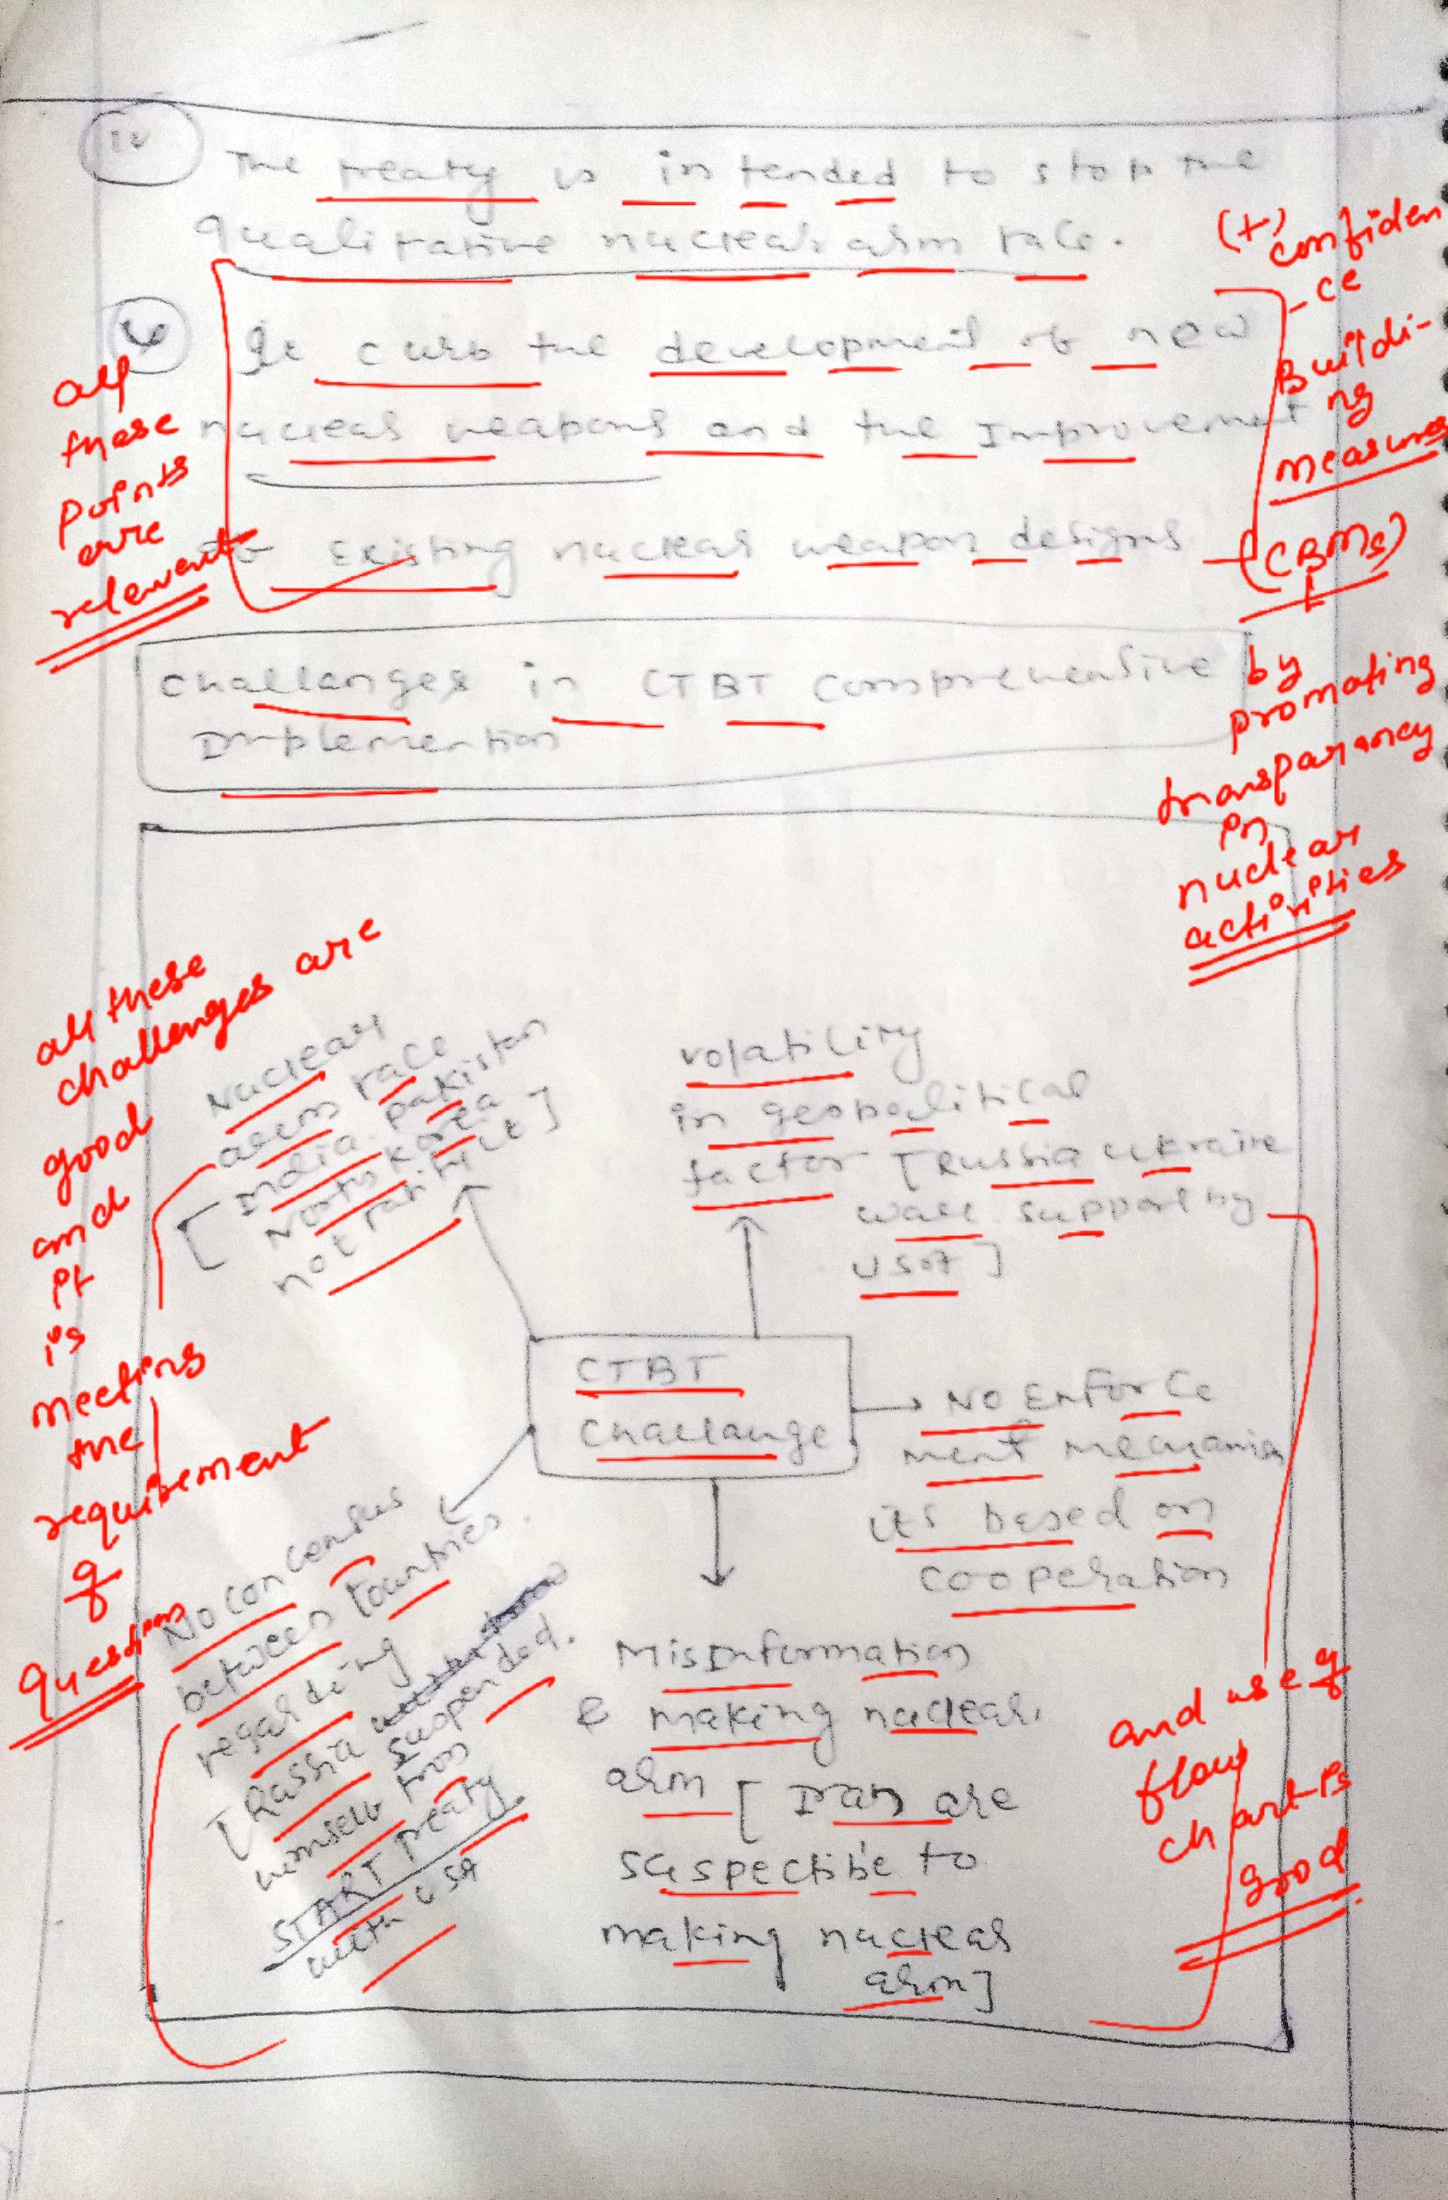 The treaty is intended to stop the
qualitative nuclear arm race.
It curb the development of new
nuclear weapons and the Improvement
of Existing nuclear weapon designs
all
these
points
are
relevant
(+)
confiden
-ce
Buildi-
ng
measures
(CBMs)
by
promoting
transparancy
in
nuclear
activities
Challanges in CTBT Comprehensive
Implemention
all these
challenges are
good
and
it
is
meeting
the
requirement
of
Question
Nuclear
arms race
[India. pakistan
North Korea
not ratified]
volatility
in geopolitical
factor [Russia Ukraine
war. support by
USA]
CTBT
Challange
No Enforce
ment mechanism
its based on
cooperation
No concensus
between countries.
regarding
[Russia suspended.
himself from
START treaty.
with USA
MisInformation
& making nuclear
arm [Iran are
suspectible to
making nuclear
arm]
and use of
flow
chart is
good